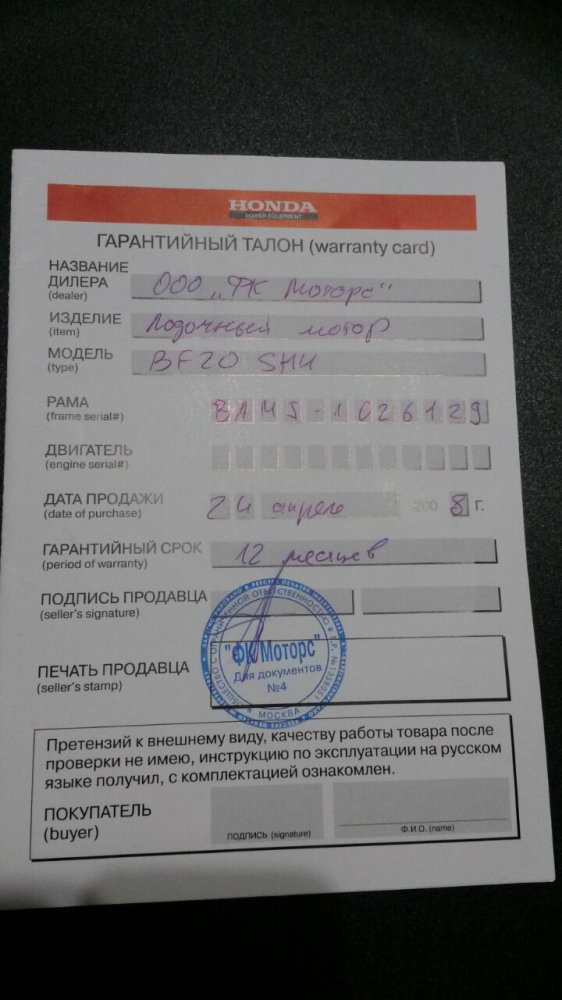 HONDA
POWER EQUIPMENT
ГАРАНТИЙНЫЙ ТАЛОН (warranty card)
НАЗВАНИЕ
ДИЛЕРА ООО „ФК Моторс“
(dealer)
ИЗДЕЛИЕ Лодочный мотор
(item)
МОДЕЛЬ BF20 SHU
(type)
РАМА BAMJ-1026129
(frame serial#)
ДВИГАТЕЛЬ
(engine serial#)
ДАТА ПРОДАЖИ 24 апреля 2008 г.
(date of purchase)
ГАРАНТИЙНЫЙ СРОК 12 месяцев
(period of warranty)
ПОДПИСЬ ПРОДАВЦА
(seller's signature)
"ФК Моторс"
Для документов
№4
МОСКВА
ПЕЧАТЬ ПРОДАВЦА
(seller's stamp)
Претензий к внешнему виду, качеству работы товара после
проверки не имею, инструкцию по эксплуатации на русском
языке получил, с комплектацией ознакомлен.
ПОКУПАТЕЛЬ
(buyer)
ПОДПИСЬ (signature) Ф.И.О. (name)